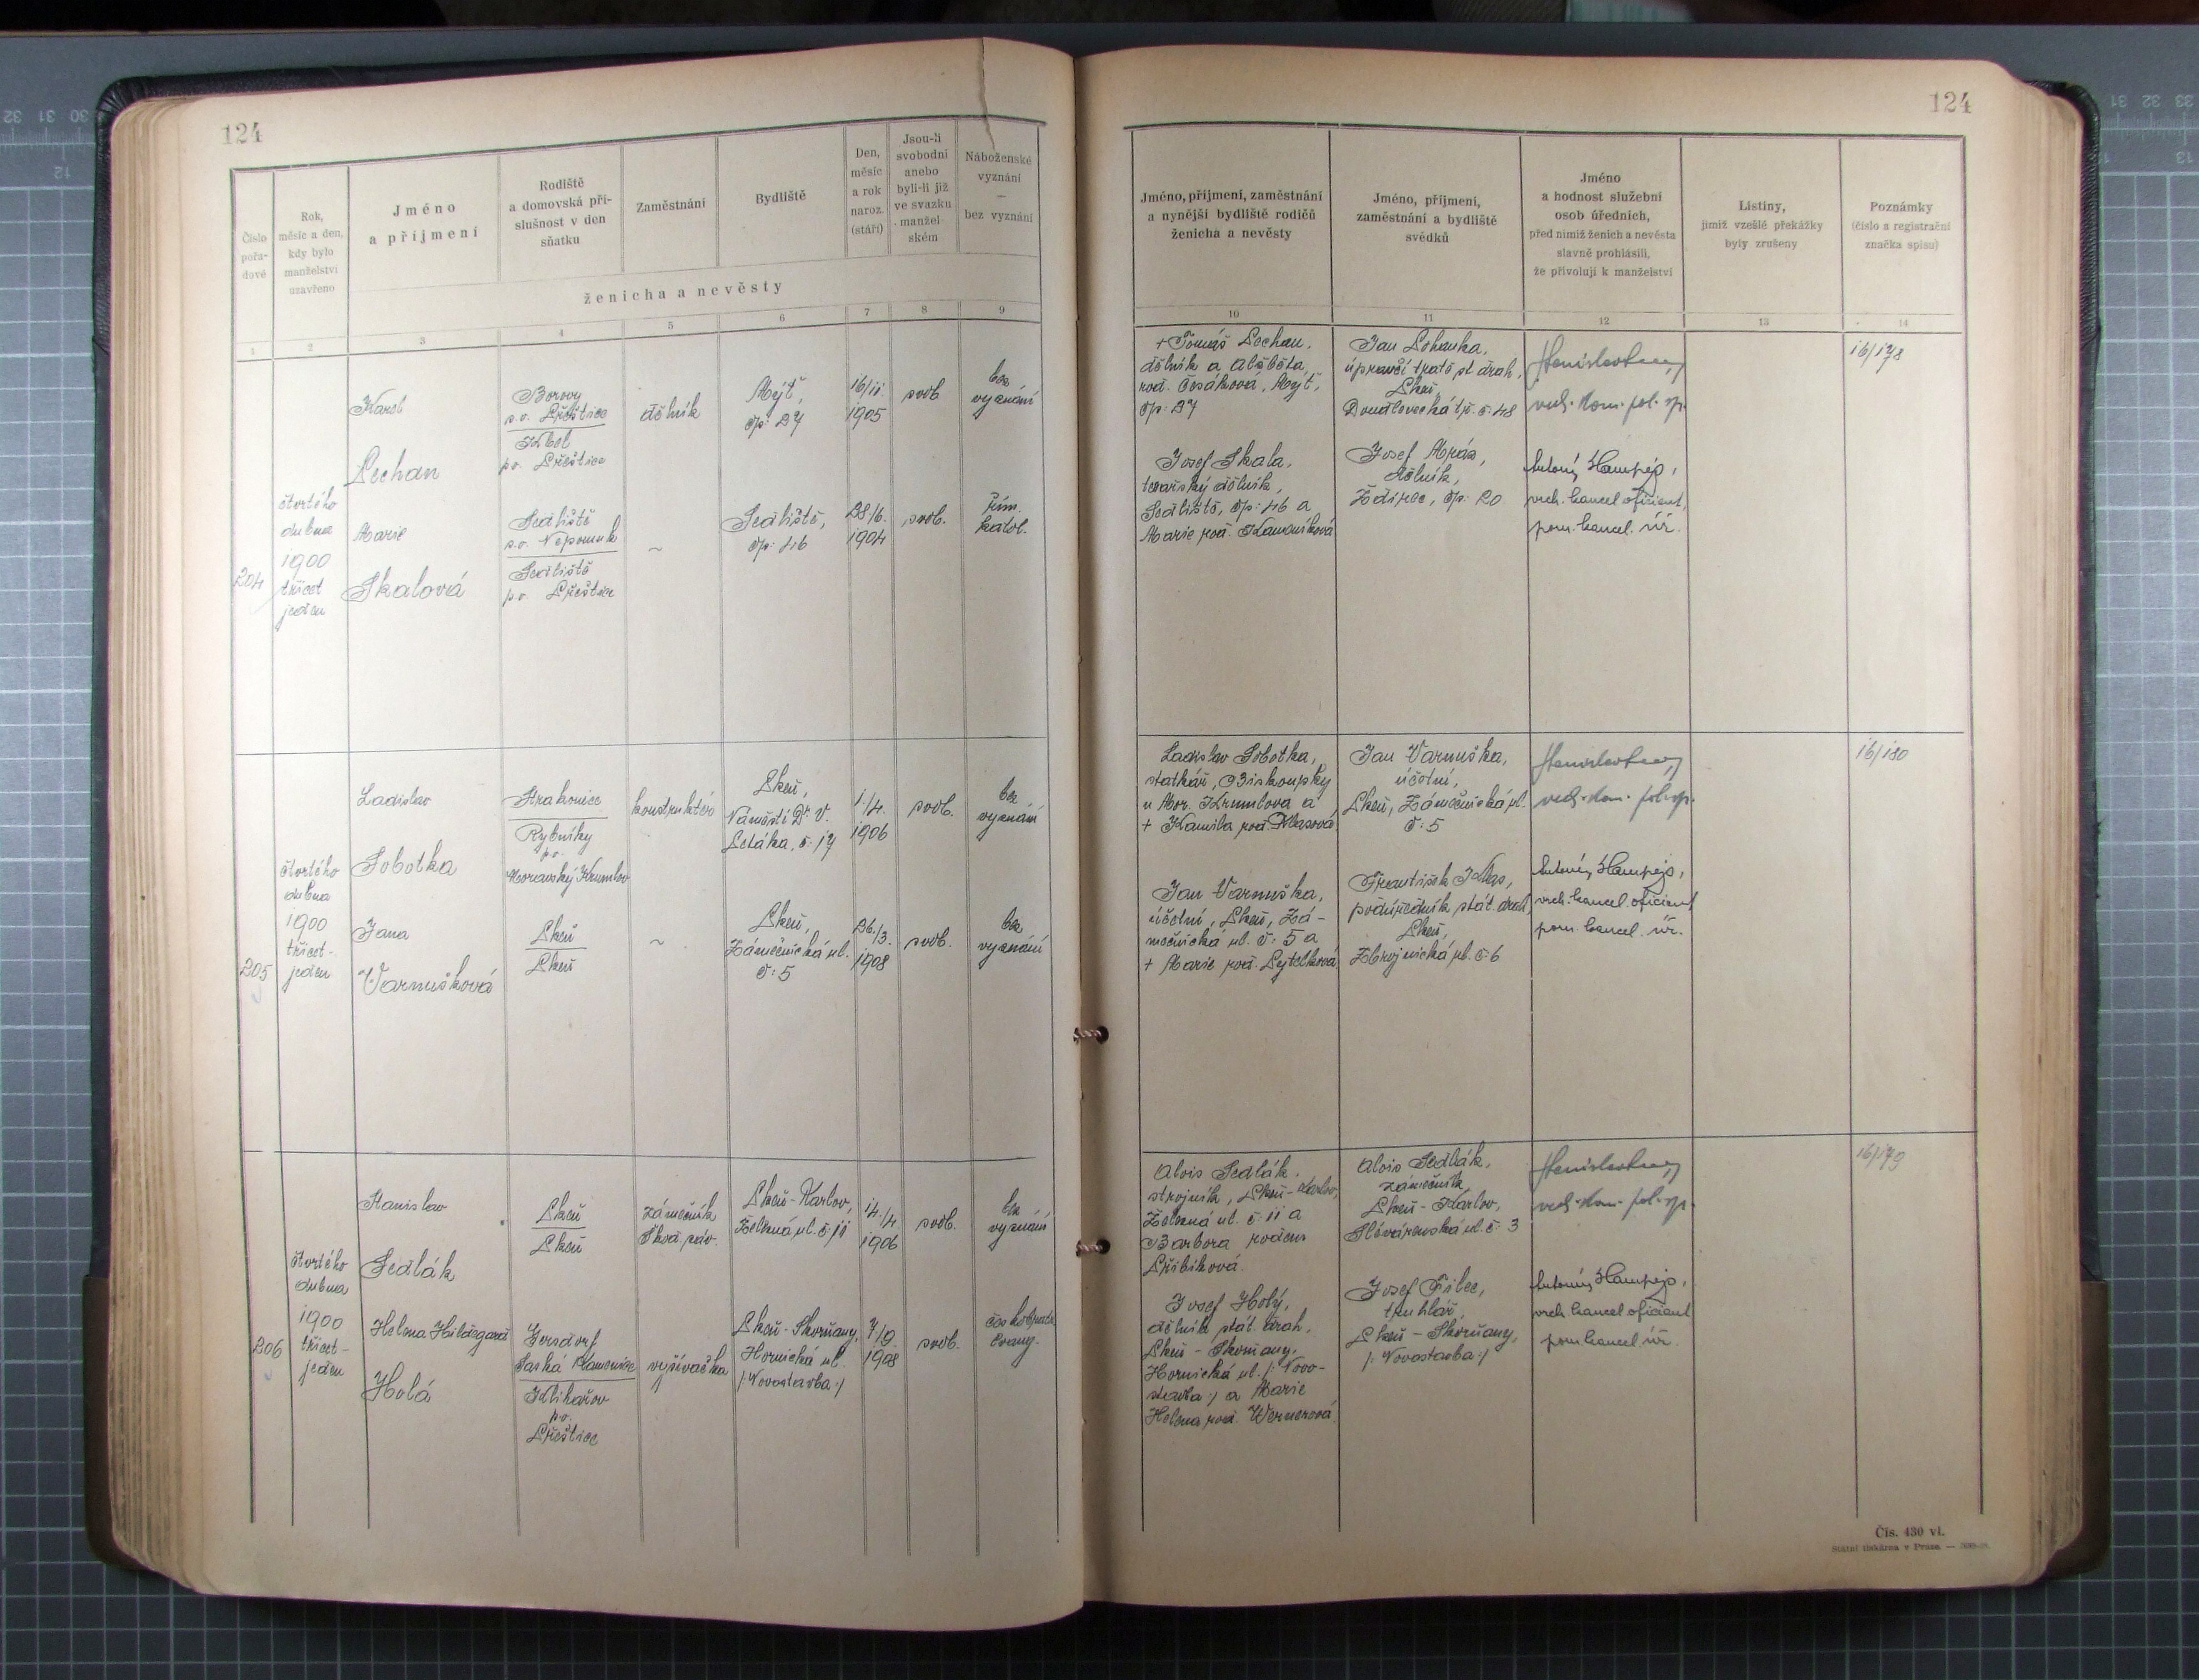 124
Číslo pořa- dové
Rok, měsíc a den, kdy bylo manželství uzavřeno
Jméno a příjmení
Rodiště a domovská pří- slušnost v den sňatku
Zaměstnání
Bydliště
Den, měsíc a rok naroz. (stáří)
Jsou-li svobodni anebo byli-li již ve svazku manžel- ském
Náboženské vyznání — bez vyznání
ženicha a nevěsty
1 2 3 4 5 6 7 8 9
204
čtvrtého
dubna
1900
třicet
jeden
Karel
Pechan
Borovy
s.o. Přeštice
Kbel
p.o. Přeštice
dělník
Mýt',
čp: 27
16/11.
1905
svob.
bez
vyznání
Marie
Skalová
Sedliště
s.o. Nepomuk
Sedliště
p.o. Přeštice
~
Sedliště,
čp: 46
28/6.
1904
svob.
řím.
katol.
205
čtvrtého
dubna
1900
třicet-
jeden
Ladislav
Sobotka
Strakonice
Rybníky
p.o.
Moravský Krumlov
konstruktér
Plzeň,
Náměstí Dr. V.
Petáka, č: 17
1./4.
1906
svob.
bez
vyznání
Jana
Varmušková
Plzeň
Plzeň
~
Plzeň,
Zámečnická ul.
č: 5
26./3.
1908
svob.
bez
vyznání
206
čtvrtého
dubna
1900
třicet-
jeden
Stanislav
Sedlák
Plzeň
Plzeň
zámečník
Škod. záv.
Plzeň-Karlov,
Železná ul. č: 11
14./4.
1906
svob.
bez
vyznání
Helena Hildegard
Holá
Gersdorf
Saská Kamenice
p.o.
Přeštice
vyšívačka
Plzeň-Skvrňany,
Hornická ul.
/: Novostavba :/
7/9.
1908
svob.
českobratr.
evang.
124
Jméno, příjmení, zaměstnání a nynější bydliště rodičů ženicha a nevěsty
Jméno, příjmení, zaměstnání a bydliště svědků
Jméno a hodnost služební osob úředních, před nimiž ženich a nevěsta slavně prohlásili, že přivolují k manželství
Listiny, jimiž vzešlé překážky byly zrušeny
Poznámky (číslo a registrační značka spisu)
10 11 12 13 14
+ Tomáš Pechan,
dělník a Alžběta,
rod. Česáková, Mýt',
čp: 27
Jan Lohanka,
úpravčí tratě st. drah,
Plzeň,
Doudlevecká tř. č: 48
vrch. kom. pol. sp.
16/178
Josef Skala,
tesařský dělník,
Sedliště, čp: 46 a
Marie rod. Kameníková
Josef Mráz,
dělník,
Ždírec, čp: 20
Antonín Hampejs,
vrch. kancel. oficiant,
pom. kancel. úř.
Ladislav Sobotka,
statkář, Biskoupky
u Mor. Krumlova a
+ Kamila rod.
Jan Varmuška,
účetní,
Plzeň, Zámečnická ul.
č: 5
vrch. kom. pol. sp.
16/180
Jan Varmuška,
účetní, Plzeň, Zá-
mečnická ul. č: 5 a
+ Marie rod. Pytelková
František Klas,
podúředník stát. drah,
Plzeň,
Zbrojnická ul. č: 6
Antonín Hampejs,
vrch. kancel. oficiant
pom. kancel. úř.
Alois Sedlák,
strojník, Plzeň-Karlov,
Železná ul. č: 11 a
Barbora rodem
Přibíková.
Alois Sedlák,
zámečník,
Plzeň-Karlov,
Slévárenská ul. č: 3
vrch. kom. pol. sp.
16/179
Josef Holý,
dělník stát. drah,
Plzeň - Skvrňany,
Hornická ul. /: Novo-
stavba :/ a Marie
Helena rod. Wernerová.
Josef Filec,
truhlář,
Plzeň - Skvrňany,
/: Novostavba :/
Antonín Hampejs,
vrch. kancel. oficiant
pom. kancel. úř.
Čís. 430 vl.
Státní tiskárna v Praze —